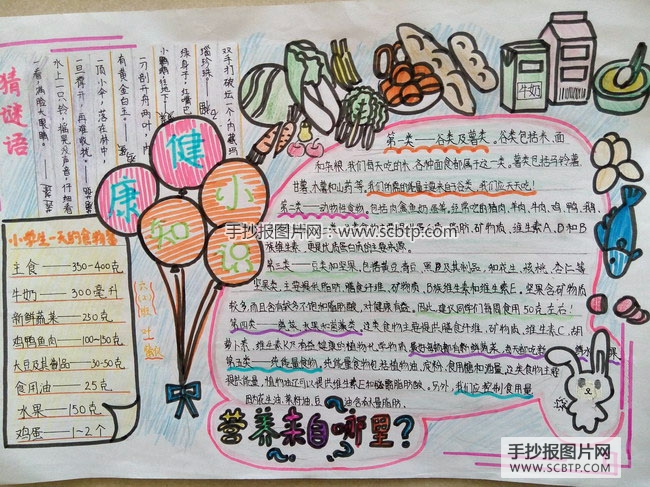 猜谜语
双手打破坛一个,内藏玛
瑙珍珠——
绿身子,红嘴巴
一刀剖开舟两叶,内
有黄金白玉。
一顶小伞,落在林中,
一旦撑开,再难收拢——
水上一只铃,摇晃没声音,仔细看
一看,满脸大黑眼。
健康小知识
小学生一天的食物量
主食——350-400克
牛奶——300毫升
新鲜蔬菜——250克
鸡鸭鱼肉——100-130克
大豆及其制品——30-50克
食用油——25克
水果——150克
鸡蛋——1~2个
牛奶
第一类——谷类及薯类。谷类包括米、面
和杂粮,我们每天吃的米、各种面食都属于这一类。薯类包括马铃薯、
甘薯、木薯和山药等。我们所需的能量主要来自谷类,我们应天天吃!
第二类——动物性食物,包括肉食鱼奶蛋等。经常吃的猪肉、羊肉、牛肉、鸡、鸭、鹅、
维生素A、D和B
族维生素,更是优质蛋白质的主要来源。
第三类——豆类和坚果,包括黄豆、青豆、黑豆及其制品,如花生、核桃、杏仁等
坚果类。主要提供脂肪、膳食纤维、矿物质、B族维生素和维生素E,坚果含矿物质
较多,而且含有较多不饱和脂肪酸,对健康有益。因此,建议同学们每周食用50克左右!
第四类——蔬菜、水果和菌藻类。这类食物主要提供膳食纤维、矿物质、维生素C、胡
萝卜素、维生素K及有益健康的植物化学物质。
第五类——纯能量食物。纯能量食物包括植物油、淀粉、食用糖和酒类。这类食物主要
提供能量,植物油还可以提供维生素E和必需脂肪酸。另外,我们应控制食用量
营养来自哪里?
手抄报图片网——www.scbtp.com
手抄报图片网
WWW.SCBTP.COM